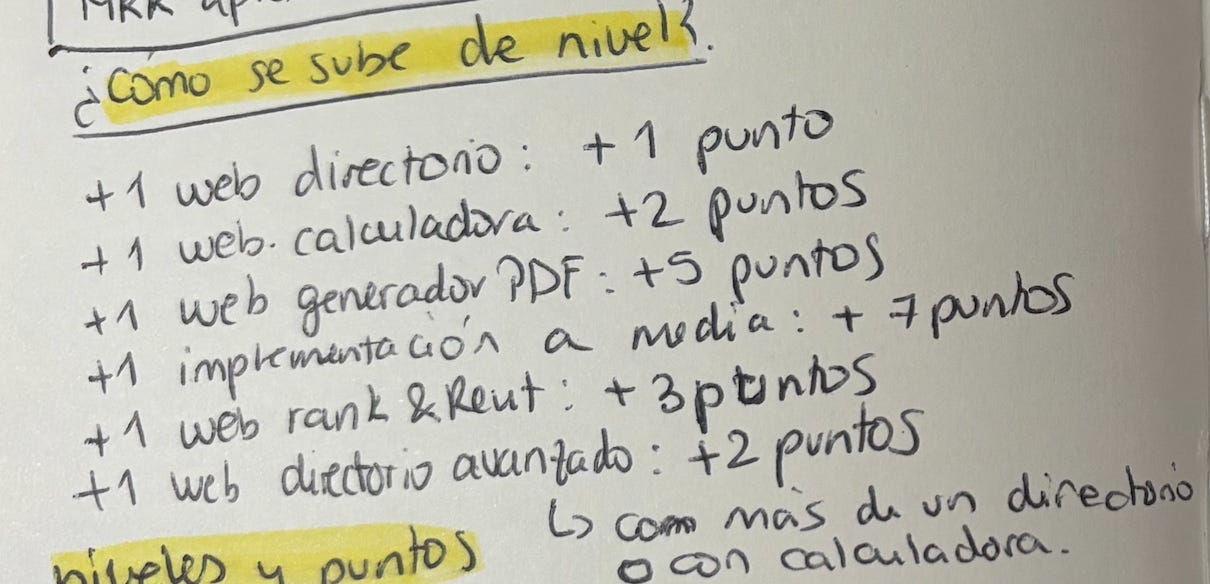 MRR
¿Cómo se sube de nivel?.
+1 web directorio: +1 punto
+1 web. calculadora: +2 puntos
+1 web generador PDF: +5 puntos
+1 implementación a media: +7 puntos
+1 web rank & Rent: +3 puntos
+1 web directorio avanzado: +2 puntos
↳ con más de un directorio
o con calculadora.
niveles y puntos